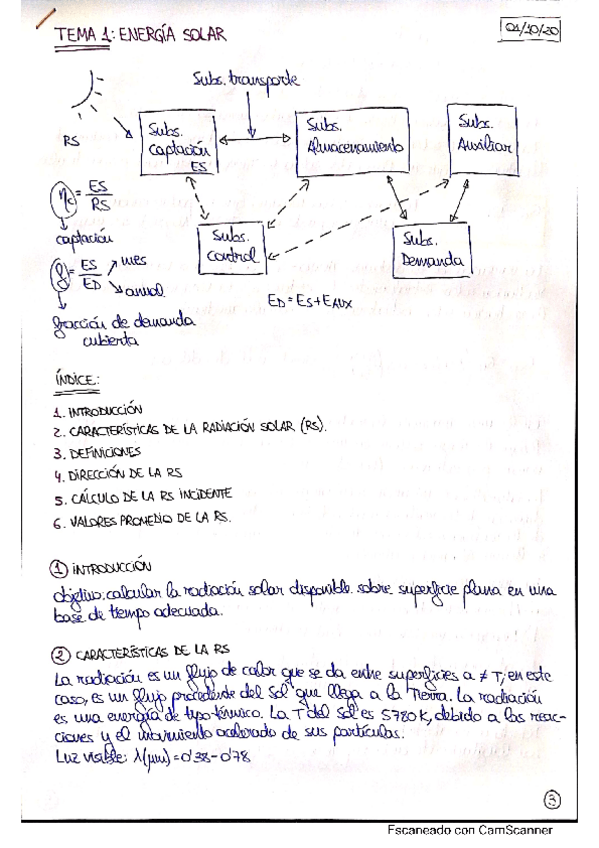 TEMA 1: ENERGÍA SOLAR
01/10/20
Subs. transporte
RS
Subs.
Captación
ES
Subs.
Almacenamiento
Subs.
Auxiliar
ηc = ES/RS
captación
Subs.
Control
Subs.
Demanda
f = ES/ED
mes
anual
ED = ES + EAUX
fracción de demanda
cubierta
ÍNDICE:
1. INTRODUCCIÓN
2. CARACTERÍSTICAS DE LA RADIACIÓN SOLAR (RS).
3. DEFINICIONES
4. DIRECCIÓN DE LA RS
5. CÁLCULO DE LA RS INCIDENTE
6. VALORES PROMEDIO DE LA RS.
1 INTRODUCCIÓN
objetivo: calcular la radiación solar disponible sobre superficie plana en una
base de tiempo adecuada.
2 CARACTERÍSTICAS DE LA RS
La radiación es un flujo de calor que se da entre superficies a ≠ T, en este
caso, es un flujo procedente del Sol que llega a la Tierra. La radiación
es una energía de tipo térmico. La T del Sol es 5780 K, debido a las reac-
ciones y el movimiento acelerado de sus partículas.
Luz visible: λ(μm) = 0'38 - 0'78
3
Escaneado con CamScanner